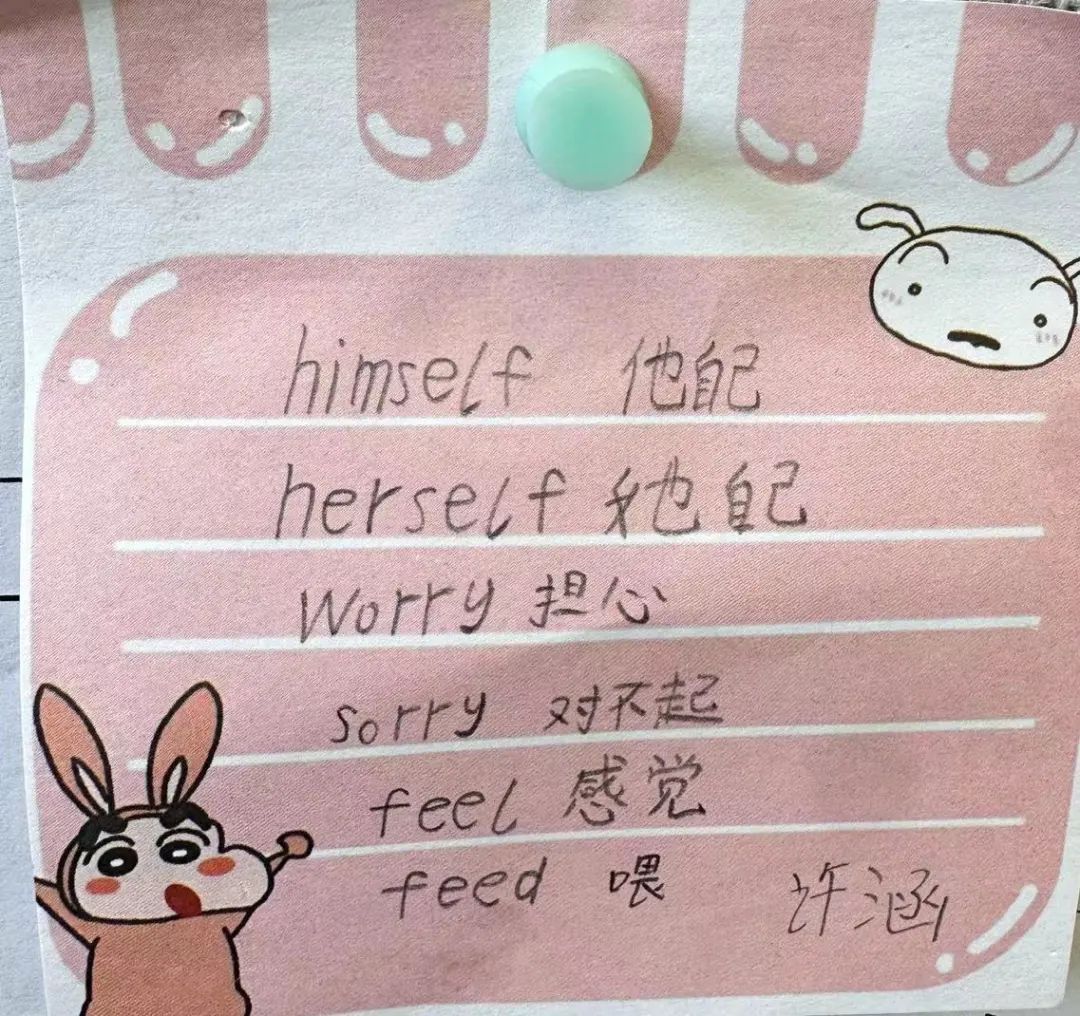 himself 他自己
herself 她自己
Worry 担心
sorry 对不起
feel 感觉
feed 喂
许涵